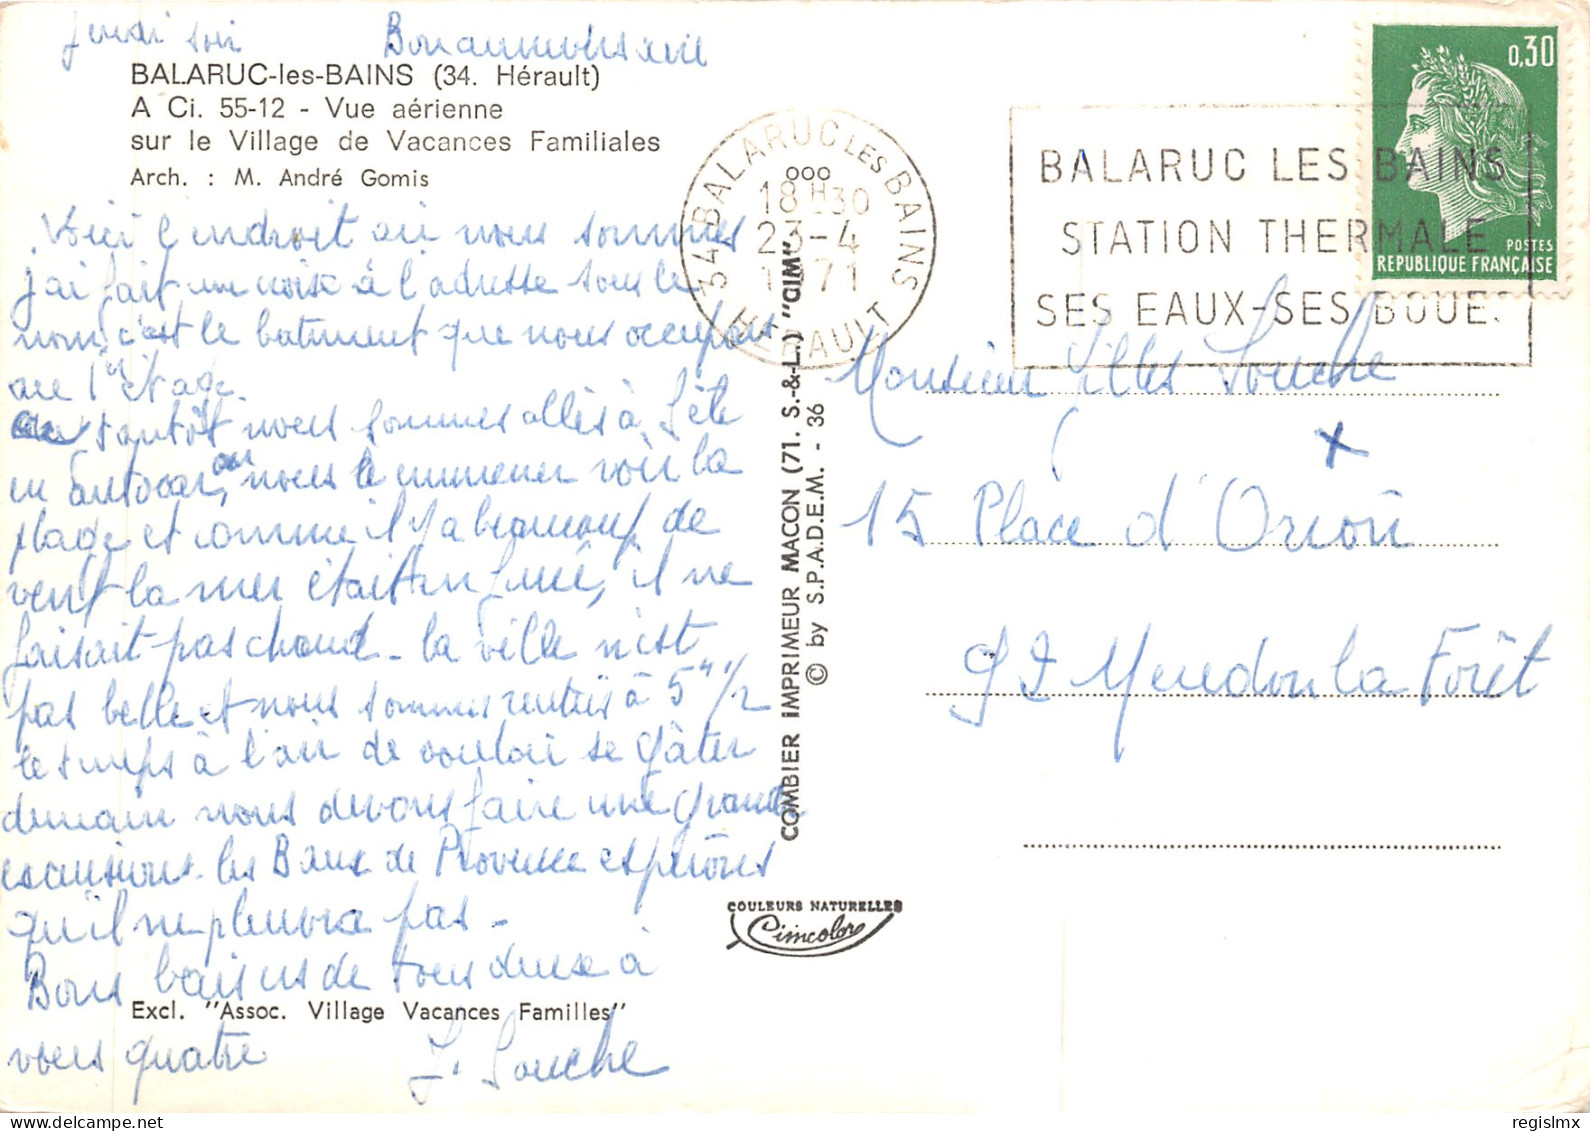 Jeudi soir Bon anniversaire
BALARUC-les-BAINS (34. Hérault)
A Ci. 55-12 - Vue aérienne
sur le Village de Vacances Familiales
Arch. : M. André Gomis
Voici l'endroit où nous sommes
j'ai fait une croix à l'adresse sous le
nom c'est le batiment que nous occupons
au 1er étage.
tantôt nous sommes allés à Sète
en autocar, on nous a emmener voir la
plage et comme il y a beaucoup de
vent la mer était en furie, il ne
faisait pas chaud - la ville n'est
pas belle et nous sommes rentrés à 5h 1/2
le temps à l'air de vouloir se gâter
demain nous devons faire une grande
excursions - les Baux de Provence espérons
qu'il ne pleuvra pas -
Bons baisers de tous deux à
Excl. "Assoc. Village Vacances Familles"
vous quatre J. Souche
34 BALARUC LES BAINS
ooo
18H30
23-4
1971
HERAULT
BALARUC LES BAINS
STATION THERMALE
SES EAUX-SES BOUES
0,30
POSTES
REPUBLIQUE FRANÇAISE
COMBIER IMPRIMEUR MACON (71. S.-&-L.) "CIM"
© by S.P.A.D.E.M. - 36
Monsieur Gilles Souche
x
15 Place d'Orion
92 Meudon la Forêt
COULEURS NATURELLES
Cimcolor
regislmx